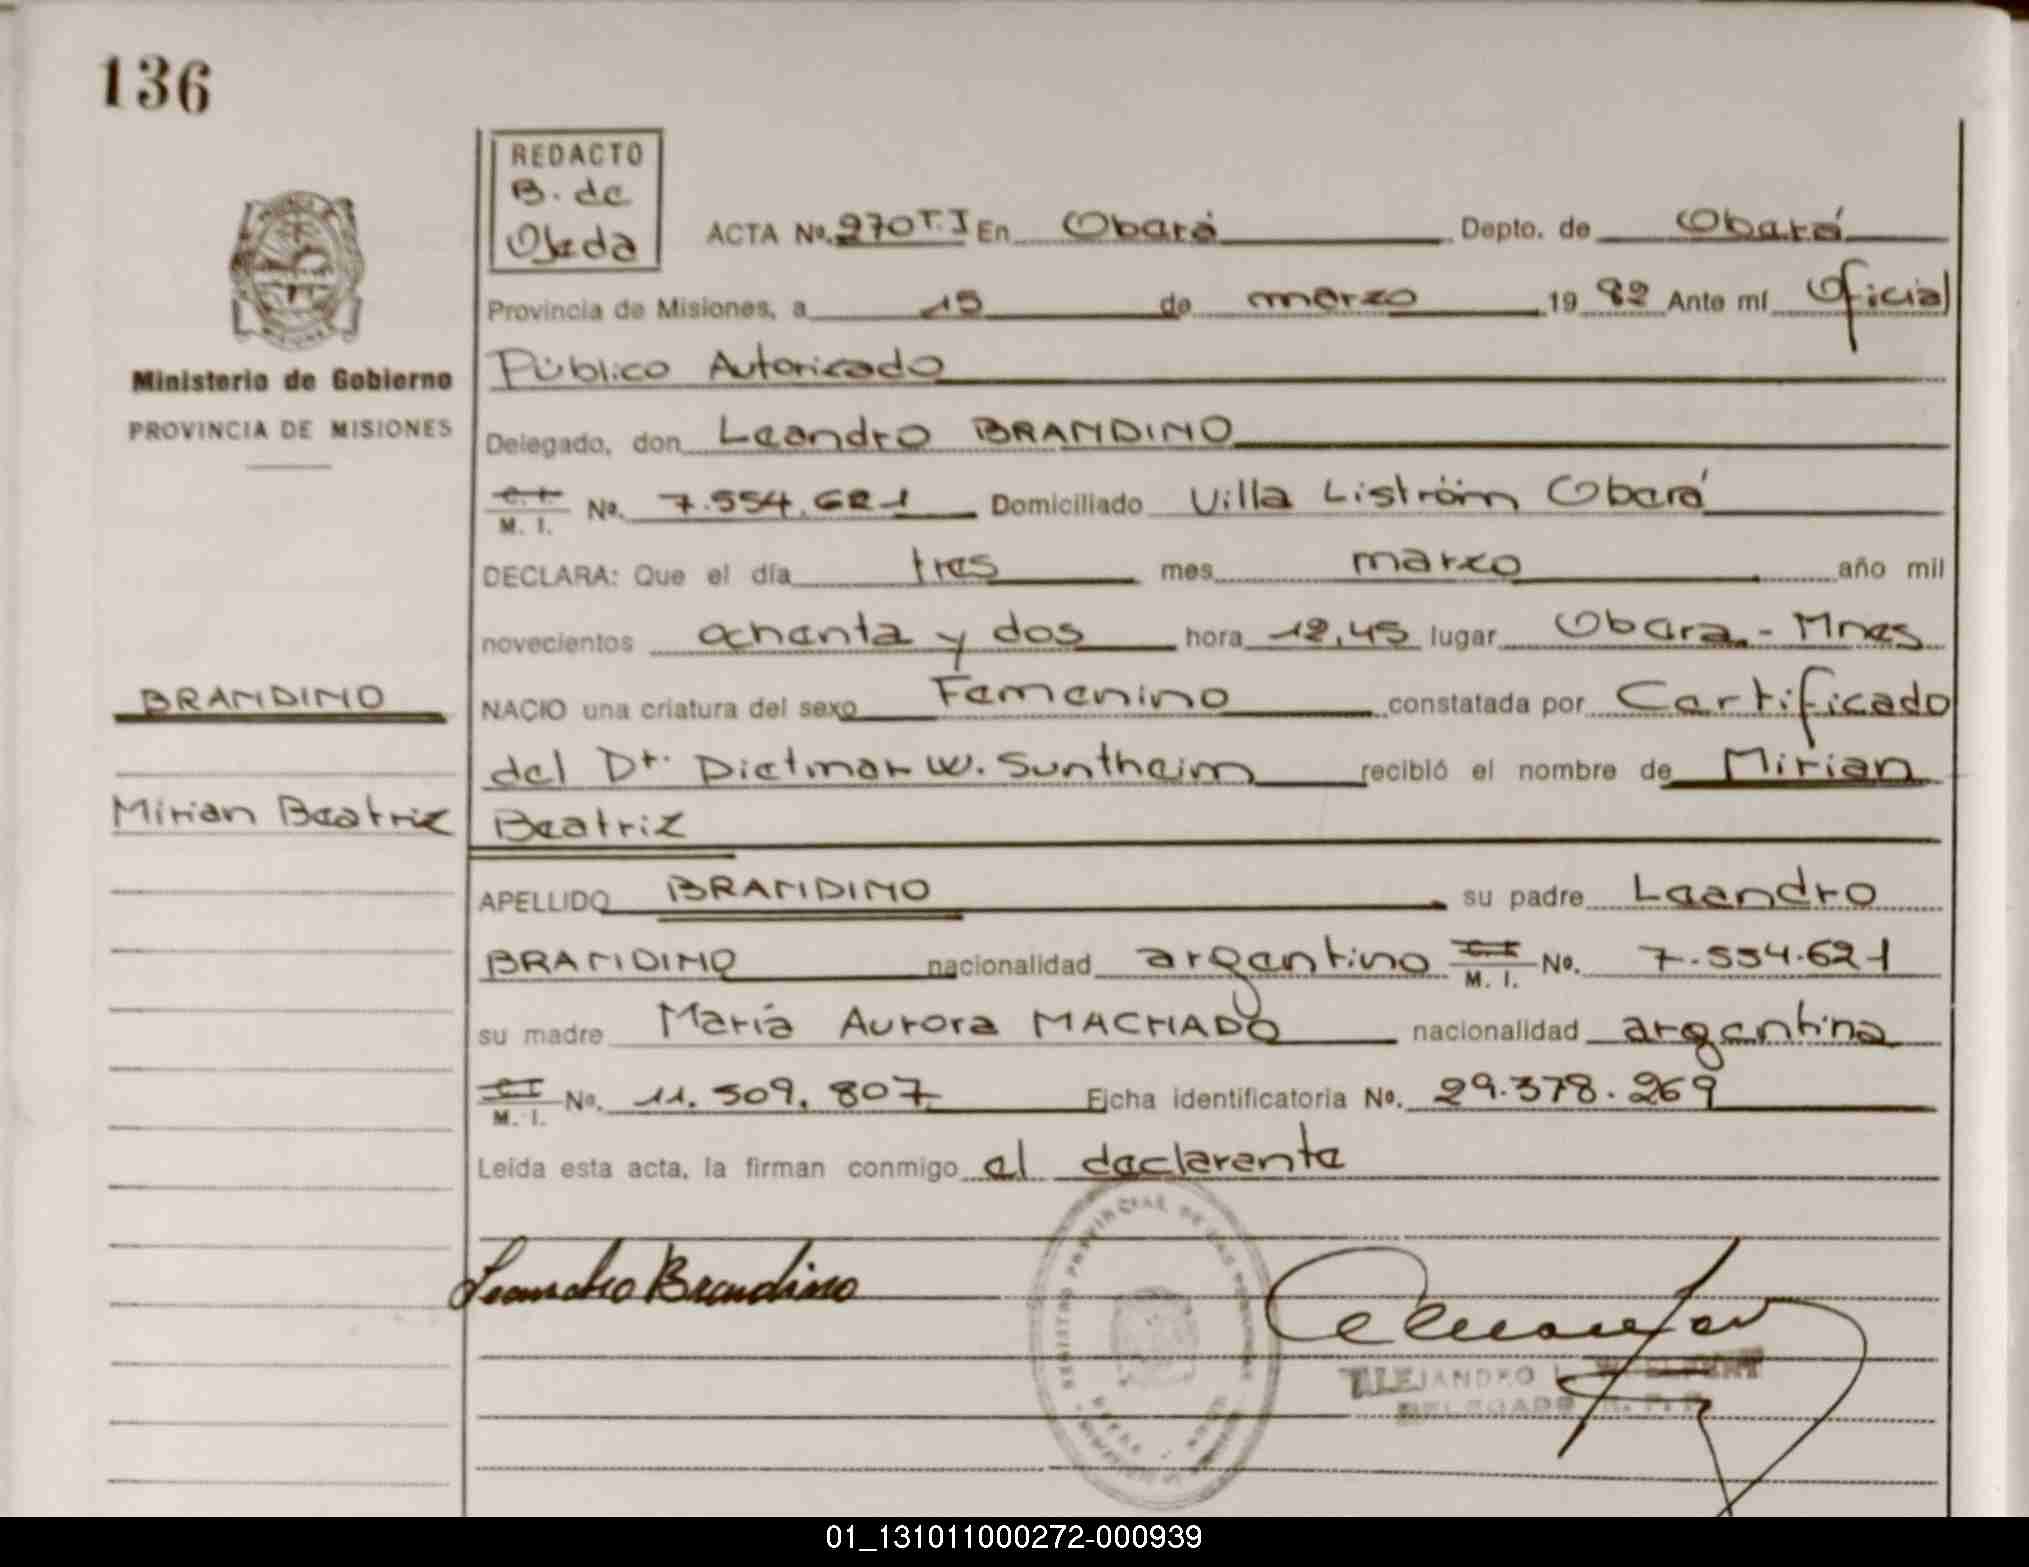 136
REDACTO
B. de
Ojeda
ACTA No. 270 T.I En Oberá Depto. de Oberá
Provincia de Misiones, a 15 de marzo 19 82 Ante mí Oficial
Ministerio de Gobierno
PROVINCIA DE MISIONES
Público Autorizado
Delegado, don Leandro BRANDINO
C.I. M. I. No. 7.554.621 Domiciliado Villa Liström Oberá
DECLARA: Que el día tres mes marzo año mil
novecientos ochenta y dos hora 12,45 lugar Obera - Mnes
BRANDINO
NACIO una criatura del sexo Femenino constatada por Certificado
del Dr. Dietmar W. Suntheim recibió el nombre de Mirian
Mirian Beatriz
Beatriz
APELLIDO BRANDINO su padre Leandro
BRANDINO nacionalidad argentino C.I. M. I. No. 7.554.621
su madre María Aurora MACHADO nacionalidad argentina
C.I. M. I. No. 11.509.807 Ficha identificatoria No. 29.378.269
Leída esta acta, la firman conmigo el declarante
Leandro Brandino
REGISTRO PROVINCIAL DE LAS PERSONAS
ALEJANDRO
DELEGADO R. P. P.
01_131011000272-000939